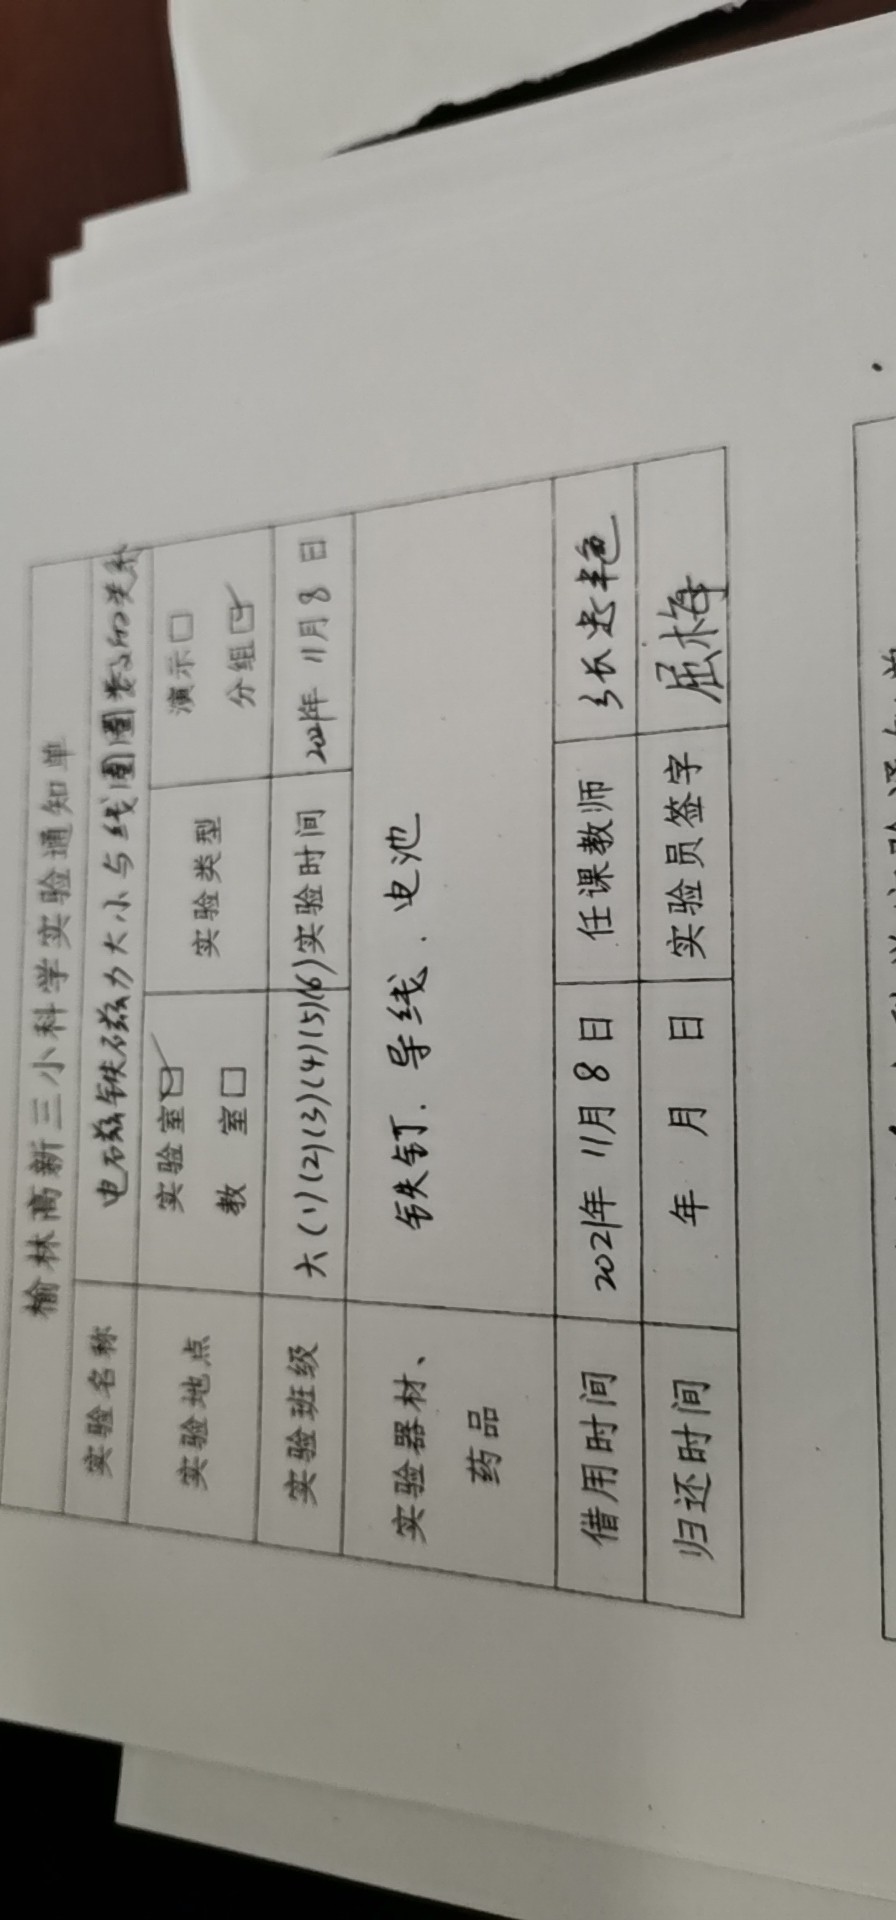 榆林高新三小科学实验通知单
实验名称 电磁铁磁力大小与线圈圈数的关系
实验地点 实验室☑ 教 室□ 实验类型 演示□ 分组☑
实验班级 六(1)(2)(3)(4)(5)(6) 实验时间 2021年 11月 8 日
实验器材、药品 铁钉.导线.电池
借用时间 2021年 11月 8 日 任课教师
归还时间 年 月 日 实验员签字 屈梅